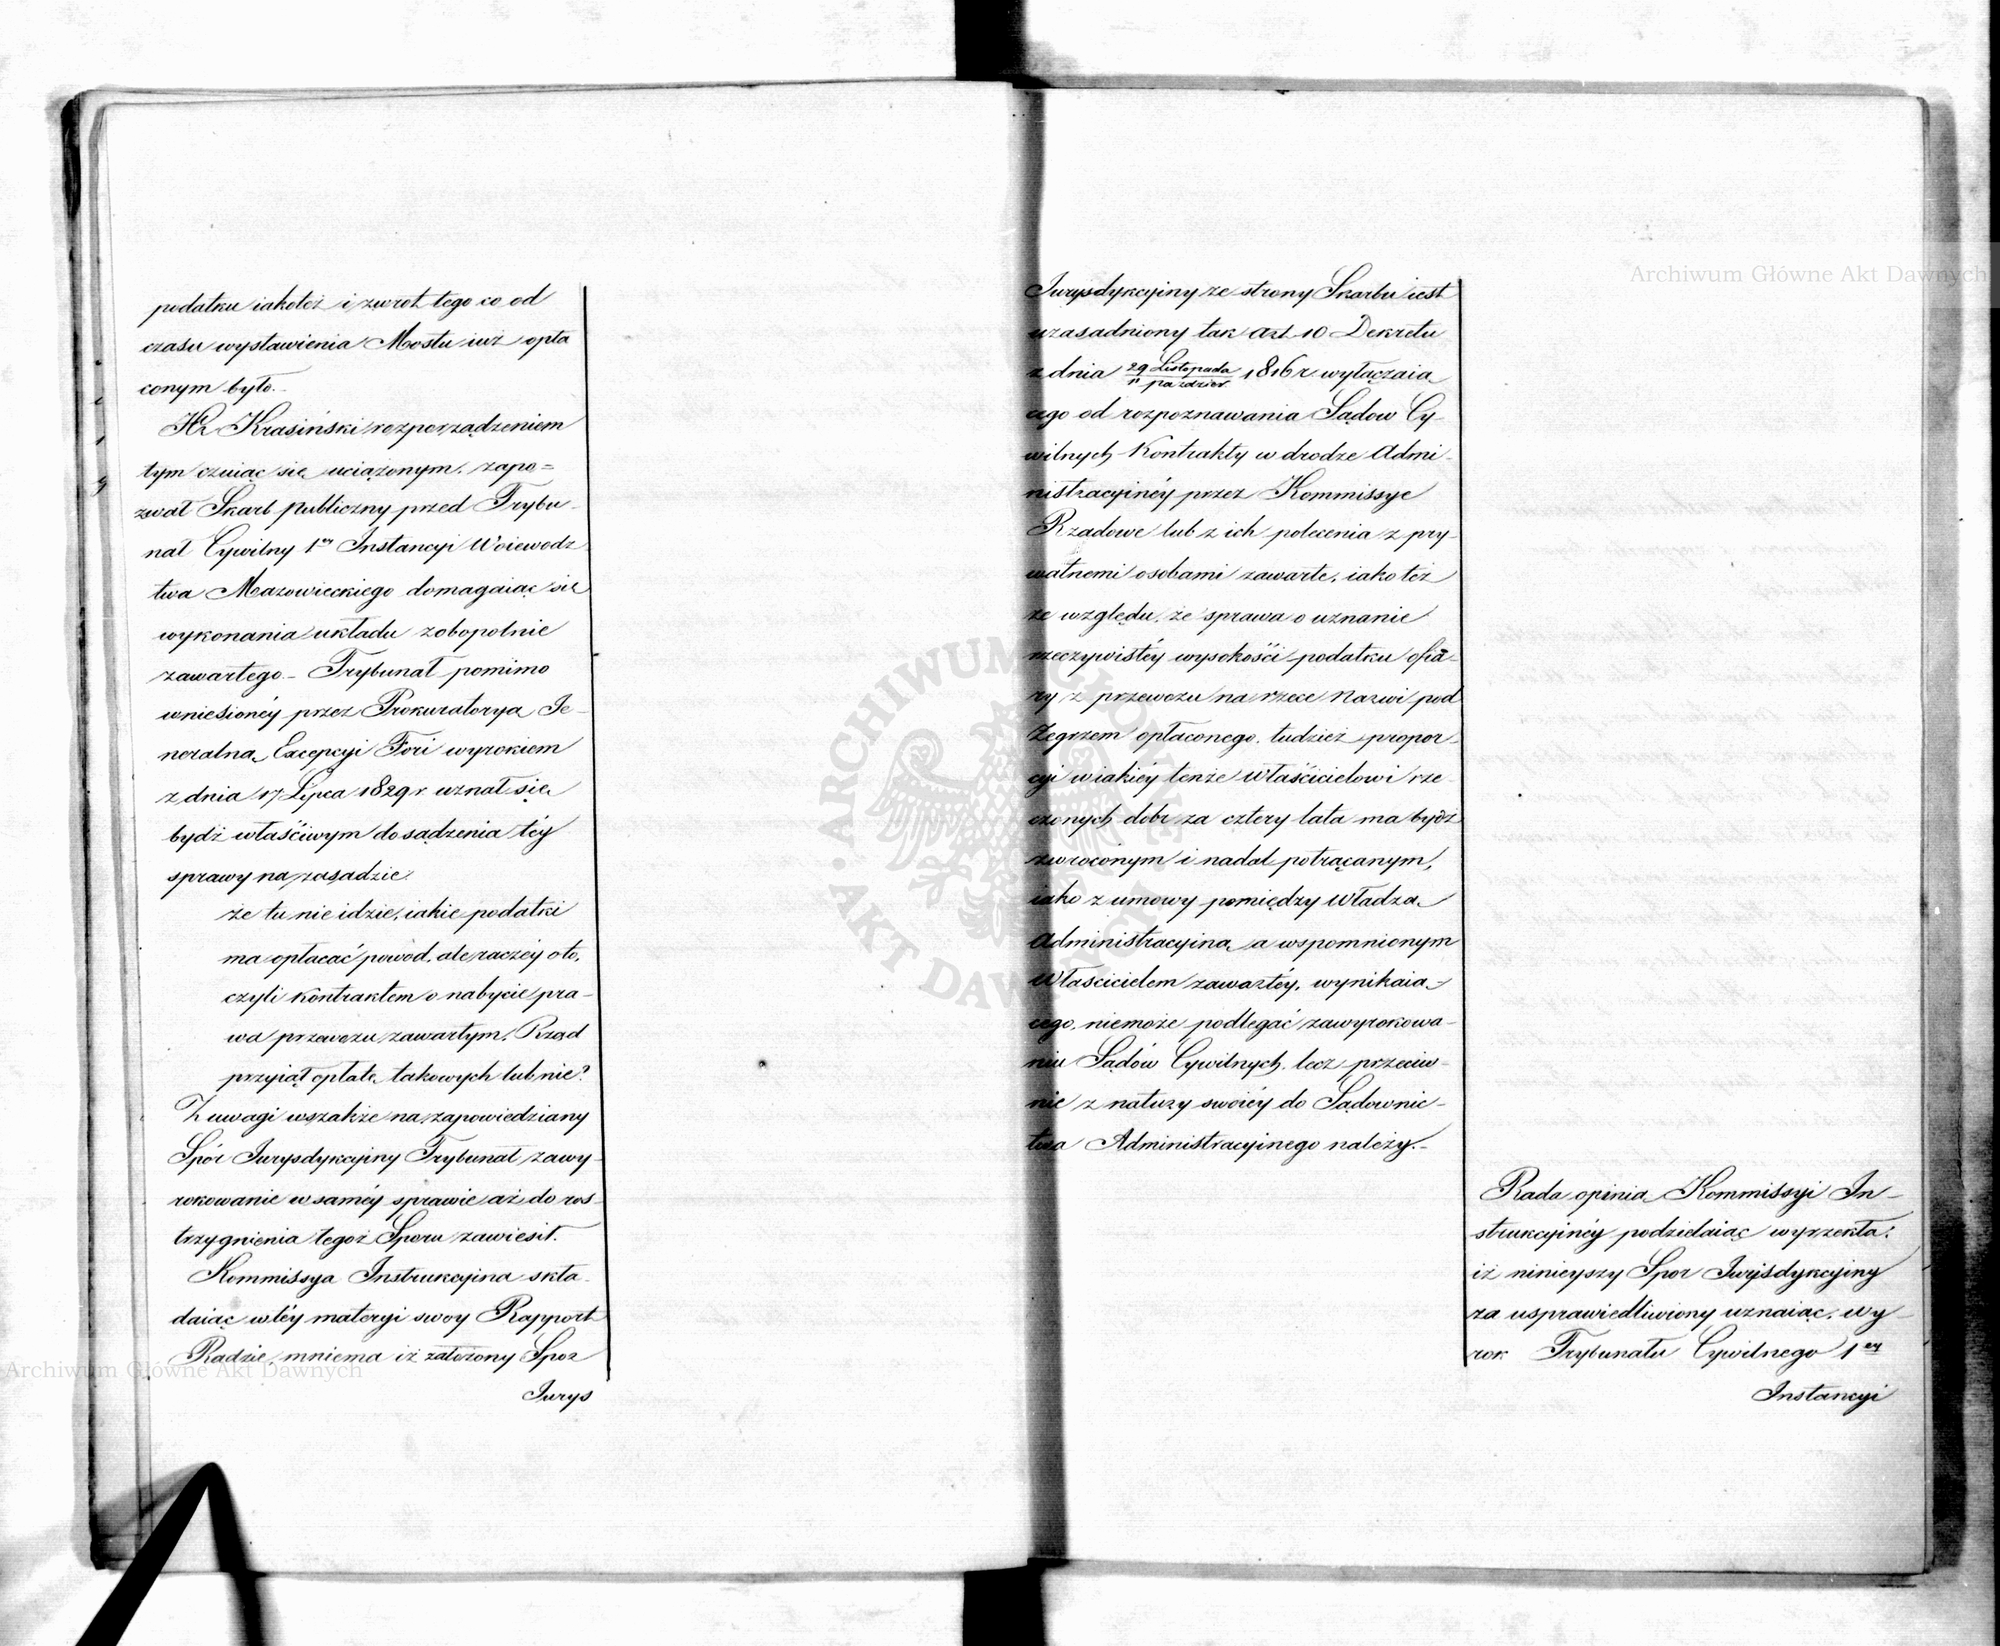 podatku iakoteż i zwrot tego co od
czasu wystawienia Mostu iuż opła
conym było.-
Hr Krasiński rozporządzeniem
tym czuiąc się uciążonym, zapo=
zwał Skarb Publiczny przed Trybu-
nał Cywilny 1ey Instancyi Woiewodz
twa Mazowieckiego domagaiąc się
wykonania układu zobopolnie
zawartego.- Trybunał pomimo
wniesionéy przez Prokuratorya Je-
neralną Excepcyi Fori wyrokiem
z dnia 17 Lipca 1829 r. uznał się
bydź właściwym do sądzenia téy
sprawy na zasadzie.
że tu nie idzie, iakie podatki
ma opłacać powód, ale raczéy oto,
czyli kontraktem o nabycie pra-
wa przewozu zawartym, Rząd
przyiął opłatę takowych lub nie?
Z uwagi wszakże na zapowiedziany
Spór Jurysdykcyiny Trybunał zawy-
rokowanie w saméy sprawie aż do ros-
trzygnienia tegoż Sporu zawiesił.
Kommissya Instrukcyina skła-
daiąc w téy materyi swoy Rapport
Radzie, mniema iż założony Spor
Jurys
Jurysdykcyiny ze strony Skarbu iest
uzasadniony tak Art 10 Dekretu
z dnia 29 Listopada / 11 paździer. 1816 r. wyłączaią
cego od rozpoznawania Sądow Cy-
wilnych Kontrakty w drodze Admi-
nistracyinéy przez Kommissye
Rządowe lub z ich polecenia z pry-
watnemi osobami zawarte, iako też
ze względu, że sprawa o uznanie
rzeczywistéy wysokości podatku ofia-
ry z przewozu na rzece Narwi pod
Zegrzem opłaconego, tudzież propor-
cyi w iakiéy tenże Właścicielowi rze-
czonych dobr za cztery lata ma bydź
zwroconym i nadal potrącanym,
iako z umowy pomiędzy Władzą
Administracyiną a wspomnionym
Właścicielem zawartéy, wynikaią-
cego, niemoże podlegać zawyrokowa-
niu Sądów Cywilnych, lecz przeciw-
nie z natury swoiéy do Sądownic-
twa Administracyinego należy.-
Rada opinią Kommissyi In-
strukcyinéy podzielaiąc wyrzekła:
iż ninieyszy Spor Jurysdykcyiny
za usprawiedliwiony uznaiąc, wy-
rok Trybunału Cywilnego 1ey
Instancyi
ARCHIWUM GŁÓWNE AKT DAWNYCH
Archiwum Główne Akt Dawnych
Archiwum Główne Akt Dawnych